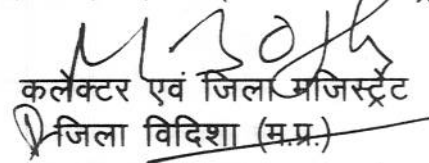 कलेक्टर एवं जिला मजिस्ट्रेट
जिला विदिशा (म.प्र.)